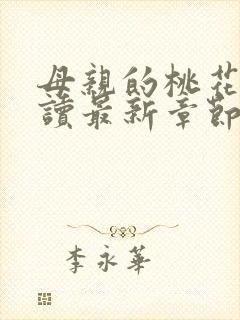 母親的桃花
讀最新章節
李永華